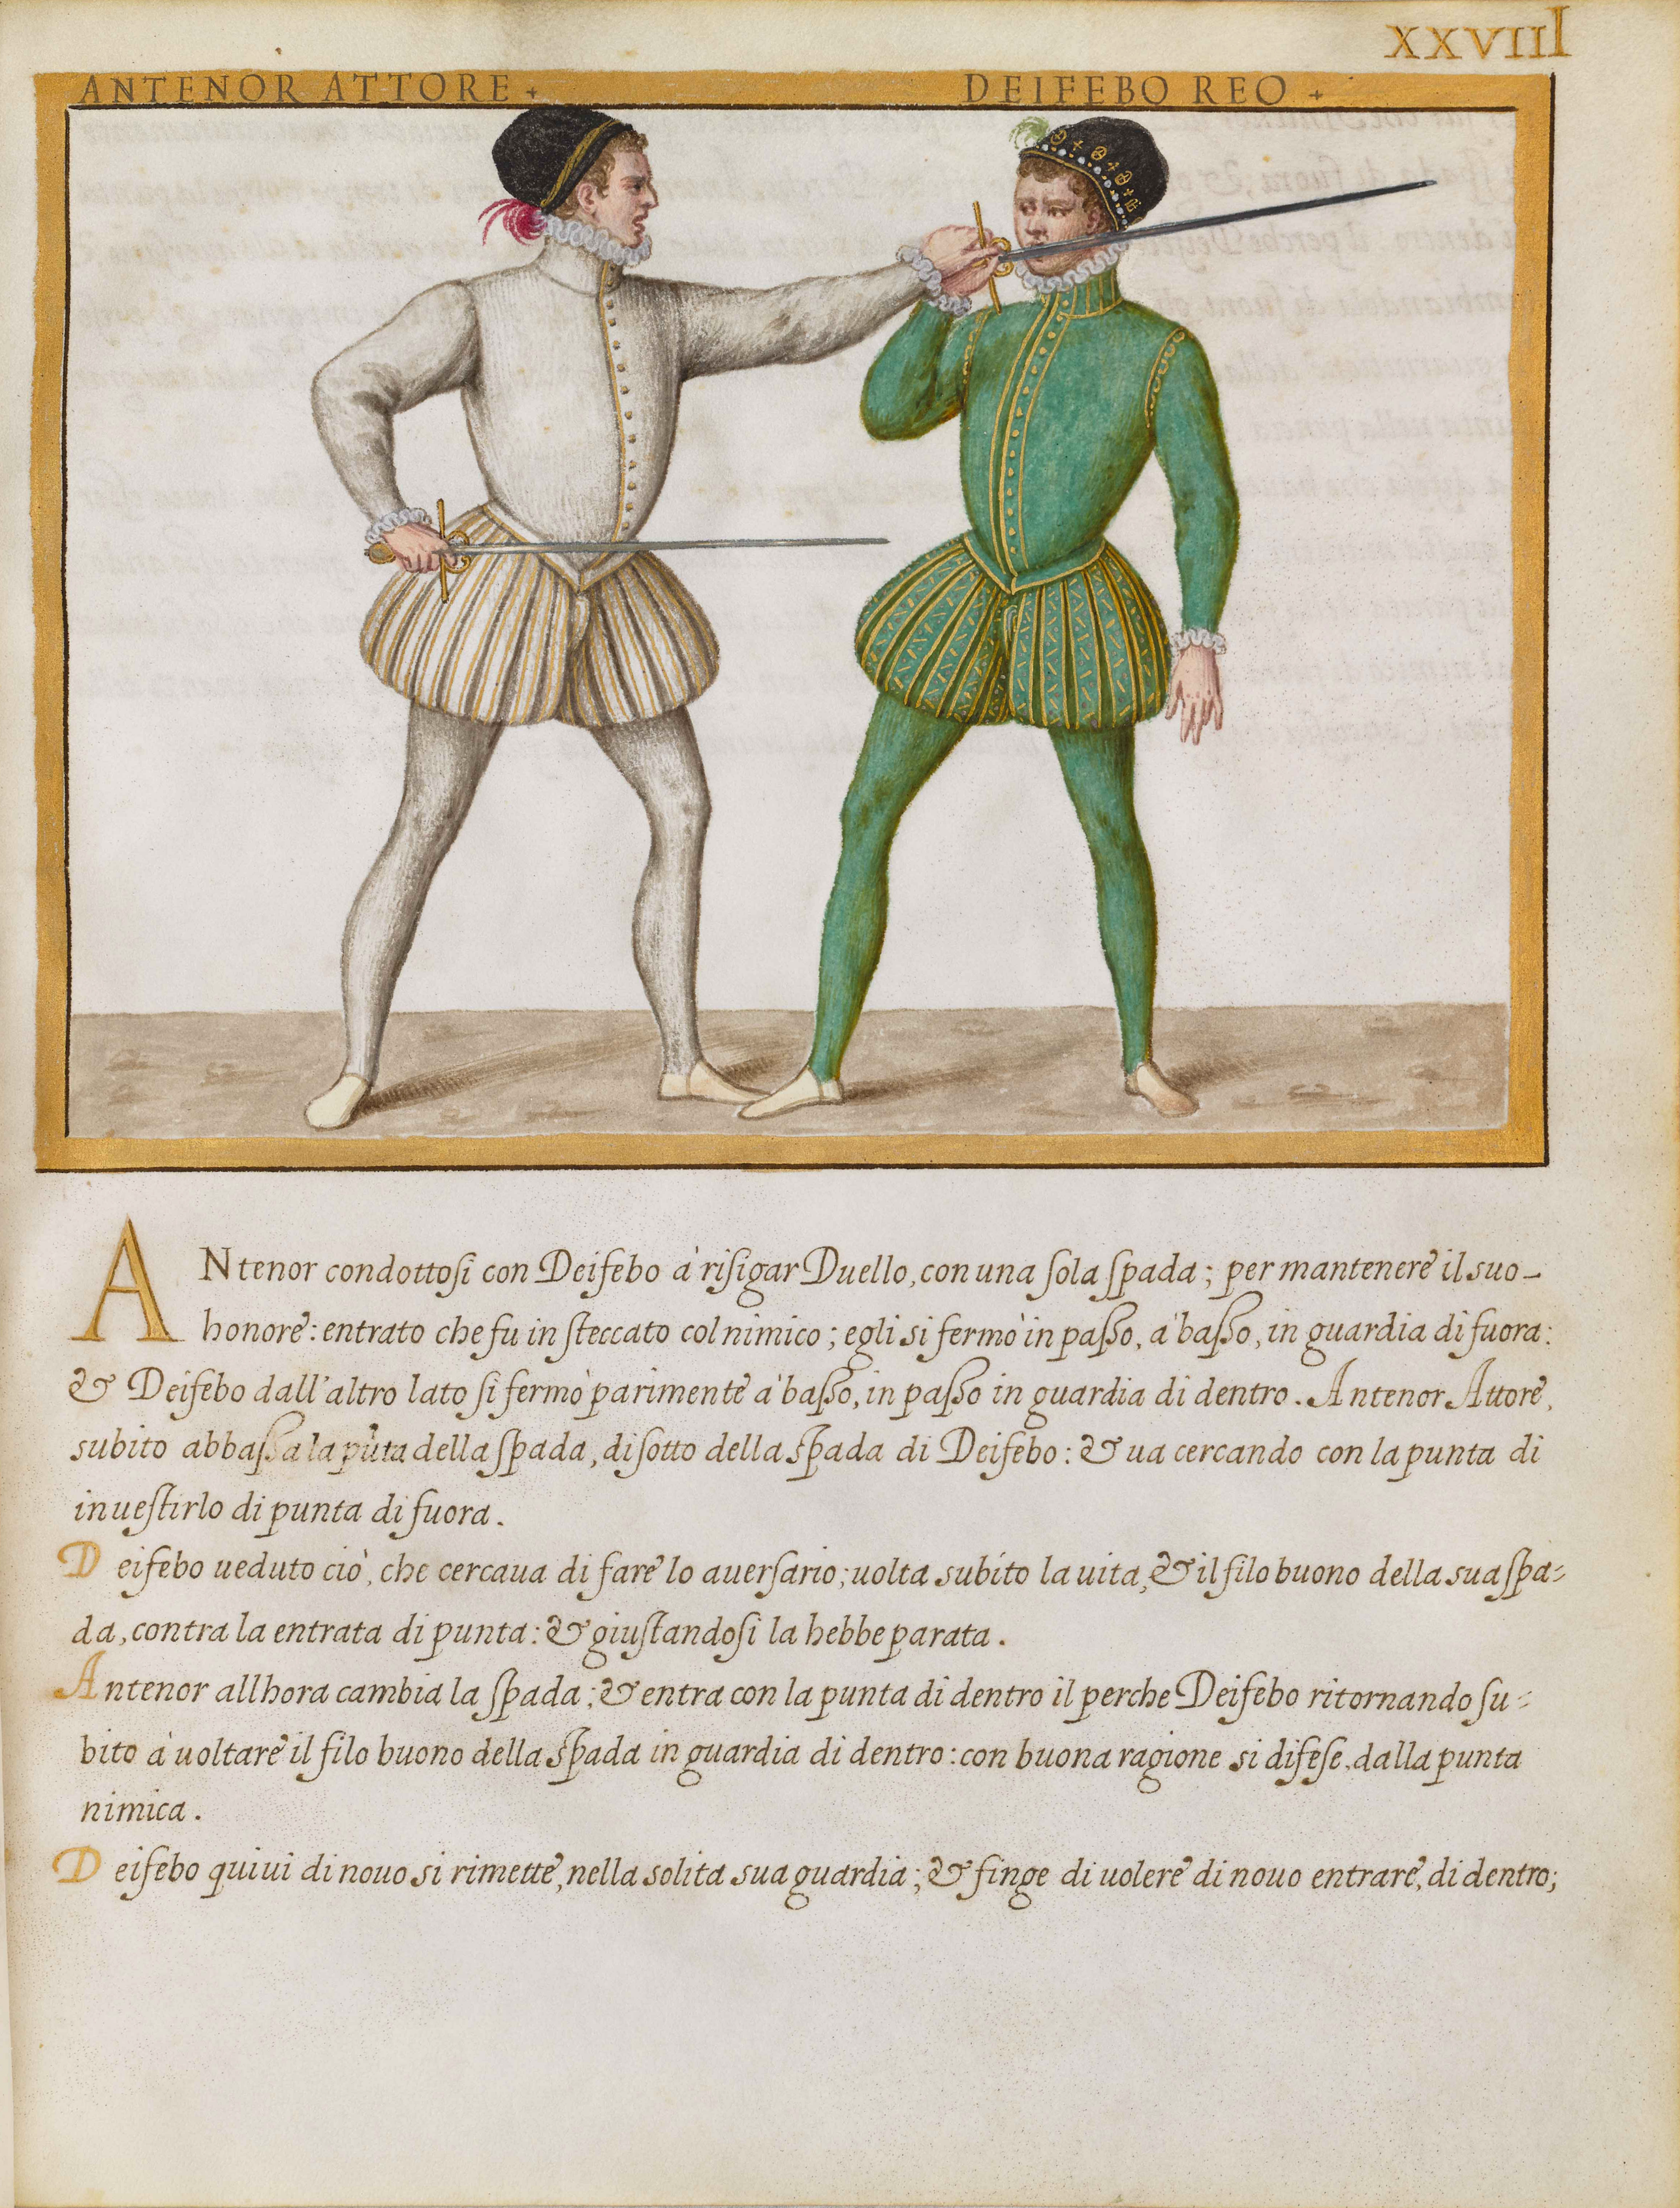 XXVIIII
ANTENOR ATTORE + DEIFEBO REO +
ANtenor condottosi con Deifebo à risigar Duello, con una sola spada; per mantenere il suo
honore: entrato che fu in steccato col nimico; egli si fermò in passo, à basso, in guardia di fuora:
& Deifebo dall'altro lato si fermò parimente à basso, in passo in guardia di dentro. Antenor Attore,
subito abbassa la pūta della spada, di sotto della spada di Deifebo: & ua cercando con la punta di
inuestirlo di punta di fuora.
Deifebo ueduto ciò, che cercaua di fare lo auersario; uolta subito la uita, & il filo buono della sua spa=
da, contra la entrata di punta: & giustandosi la hebbe parata.
Antenor allhora cambia la spada; & entra con la punta di dentro il perche Deifebo ritornando su=
bito à uoltare il filo buono della spada in guardia di dentro: con buona ragione si difese, dalla punta
nimica.
Deifebo quiui di nouo si rimette, nella solita sua guardia; & finge di uolere di nouo entrare, di dentro;